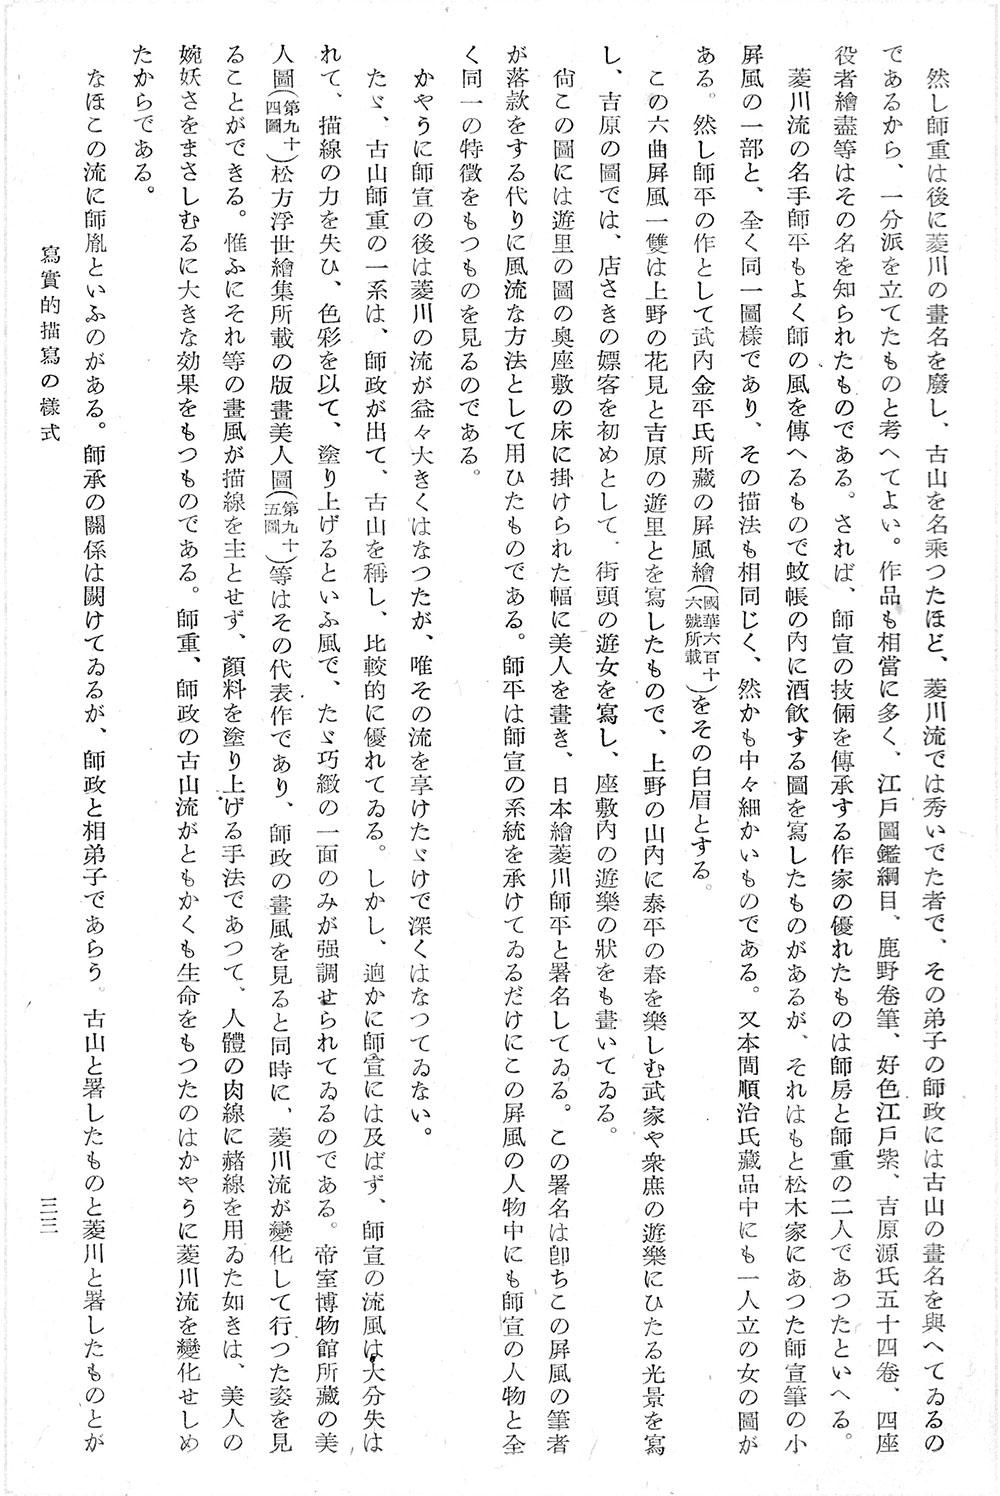 然し師重は後に菱川の畫名を廢し、古山を名乘つたほど、菱川流では秀いでた者で、その弟子の師政には古山の畫名を與へてゐるの
であるから、一分派を立てたものと考へてよい。作品も相當に多く、江戶圖鑑綱目、鹿野卷筆、好色江戶紫、吉原源氏五十四卷、四座
役者繪盡等はその名を知られたものである。されば、師宣の技倆を傳承する作家の優れたものは師房と師重の二人であつたといへる。
菱川流の名手師平もよく師の風を傳へるもので蚊帳の內に酒飮する圖を寫したものがあるが、それはもと松木家にあつた師宣筆の小
屛風の一部と、全く同一圖樣であり、その描法も相同じく、然かも中々細かいものである。又本間順治氏藏品中にも一人立の女の圖が
ある。然し師平の作として武內金平氏所藏の屛風繪(國華六百十六號所載)をその白眉とする。
この六曲屛風一雙は上野の花見と吉原の遊里とを寫したもので、上野の山內に泰平の春を樂しむ武家や衆庶の遊樂にひたる光景を寫
し、吉原の圖では、店さきの嫖客を初めとして、街頭の遊女を寫し、座敷內の遊樂の狀をも畫いてゐる。
尙この圖には遊里の圖の奧座敷の床に掛けられた幅に美人を畫き、日本繪菱川師平と署名してゐる。この署名は卽ちこの屛風の筆者
が落款をする代りに風流な方法として用ひたものである。師平は師宣の系統を承けてゐるだけにこの屛風の人物中にも師宣の人物と全
く同一の特徵をもつものを見るのである。
かやうに師宣の後は菱川の流が益々大きくはなつたが、唯その流を享けたゞけで深くはなつてゐない。
たゞ、古山師重の一系は、師政が出て、古山を稱し、比較的に優れてゐる。しかし、逈かに師宣には及ばず、師宣の流風は大分失は
れて、描線の力を失ひ、色彩を以て、塗り上げるといふ風で、たゞ巧緻の一面のみが强調せられてゐるのである。帝室博物館所藏の美
人圖(第九十四圖)松方浮世繪集所載の版畫美人圖(第九十五圖)等はその代表作であり、師政の畫風を見ると同時に、菱川流が變化して行つた姿を見
ることができる。惟ふにそれ等の畫風が描線を主とせず、顏料を塗り上げる手法であつて、人體の肉線に赭線を用ゐた如きは、美人の
婉妖さをまさしむるに大きな效果をもつものである。師重、師政の古山流がともかくも生命をもつたのはかやうに菱川流を變化せしめ
たからである。
なほこの流に師胤といふのがある。師承の關係は闕けてゐるが、師政と相弟子であらう。古山と署したものと菱川と署したものとが
寫實的描寫の樣式
三三